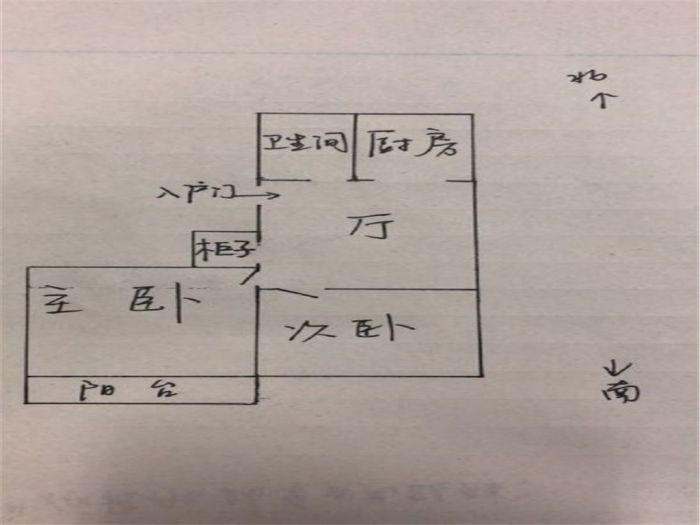 北
卫生间 厨房
入户门
厅
柜子
主卧
次卧
阳台
南